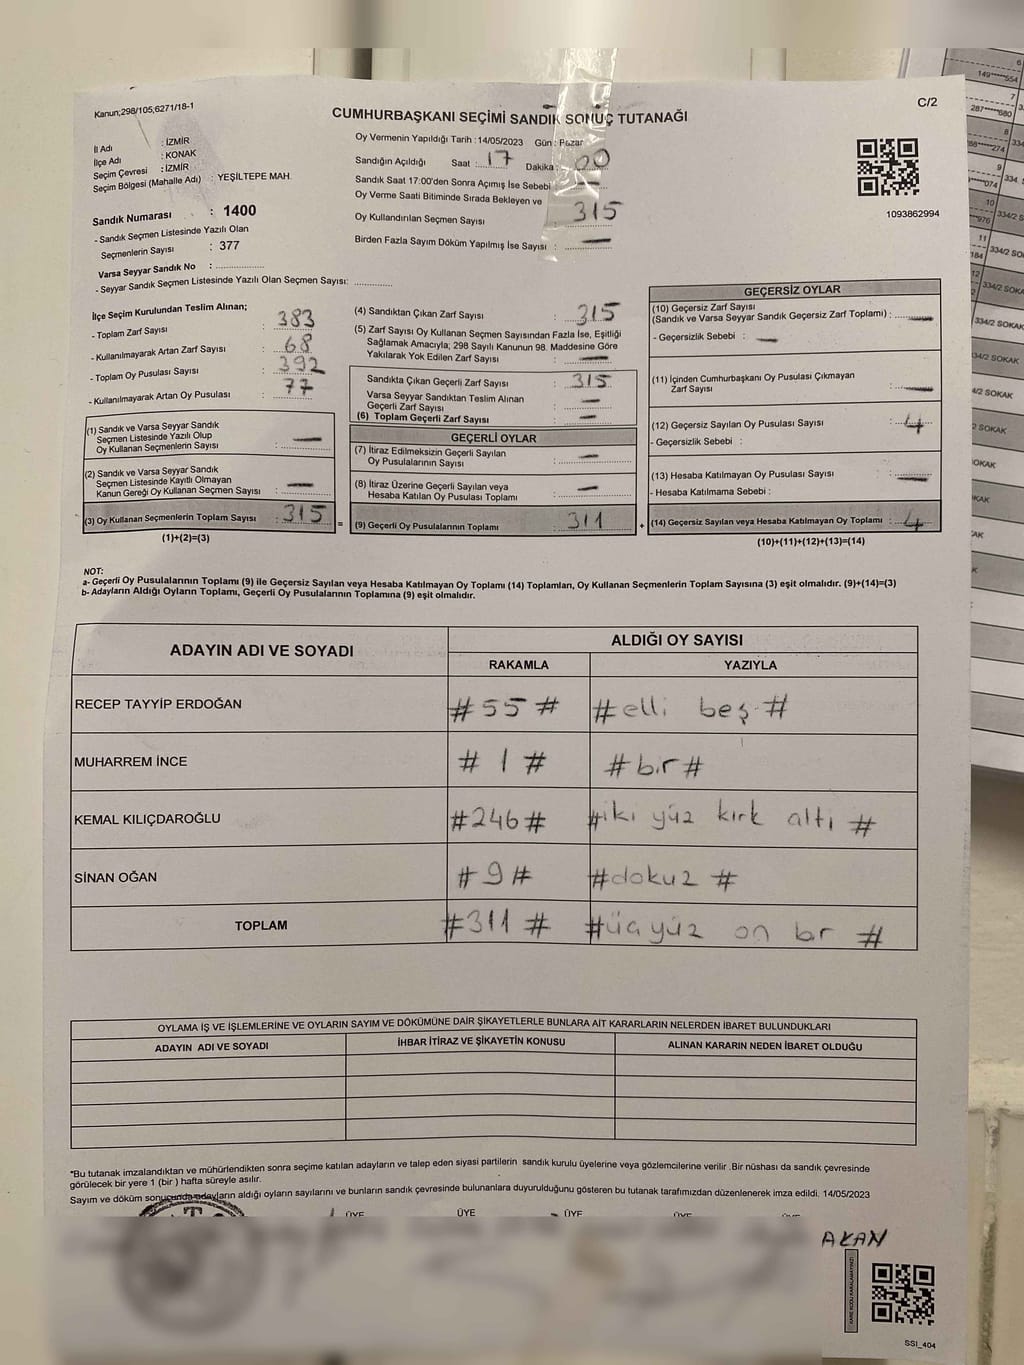 Kanun;298/105,6271/18-1
C/2
CUMHURBAŞKANI SEÇİMİ SANDIK SONUÇ TUTANAĞI
İl Adı : İZMİR
İlçe Adı : KONAK
Seçim Çevresi : İZMİR
Seçim Bölgesi (Mahalle Adı) : YEŞİLTEPE MAH.
Sandık Numarası : 1400
- Sandık Seçmen Listesinde Yazılı Olan
Seçmenlerin Sayısı : 377
Varsa Seyyar Sandık No :
- Seyyar Sandık Seçmen Listesinde Yazılı Olan Seçmen Sayısı:
Oy Vermenin Yapıldığı Tarih :14/05/2023 Gün : Pazar
Sandığın Açıldığı Saat : 17 Dakika : 00
Sandık Saat 17:00'den Sonra Açımış İse Sebebi : —
Oy Verme Saati Bitiminde Sırada Bekleyen ve
Oy Kullandırılan Seçmen Sayısı : 315
Birden Fazla Sayım Döküm Yapılmış İse Sayısı : —
1093862994
İlçe Seçim Kurulundan Teslim Alınan;
- Toplam Zarf Sayısı : 383
- Kullanılmayarak Artan Zarf Sayısı : 68
- Toplam Oy Pusulası Sayısı : 392
- Kullanılmayarak Artan Oy Pusulası : 77
(1) Sandık ve Varsa Seyyar Sandık
Seçmen Listesinde Yazılı Olup
Oy Kullanan Seçmenlerin Sayısı : —
(2) Sandık ve Varsa Seyyar Sandık
Seçmen Listesinde Kayıtlı Olmayan
Kanun Gereği Oy Kullanan Seçmen Sayısı : —
(3) Oy Kullanan Seçmenlerin Toplam Sayısı : 315
(1)+(2)=(3)
(4) Sandıktan Çıkan Zarf Sayısı : 315
(5) Zarf Sayısı Oy Kullanan Seçmen Sayısından Fazla İse, Eşitliği
Sağlamak Amacıyla; 298 Sayılı Kanunun 98. Maddesine Göre
Yakılarak Yok Edilen Zarf Sayısı : —
Sandıkta Çıkan Geçerli Zarf Sayısı : 315
Varsa Seyyar Sandıktan Teslim Alınan
Geçerli Zarf Sayısı : —
(6) Toplam Geçerli Zarf Sayısı : —
GEÇERLİ OYLAR
(7) İtiraz Edilmeksizin Geçerli Sayılan
Oy Pusulalarının Sayısı : —
(8) İtiraz Üzerine Geçerli Sayılan veya
Hesaba Katılan Oy Pusulası Toplamı : —
= (9) Geçerli Oy Pusulalarının Toplamı : 311 +
GEÇERSİZ OYLAR
(10) Geçersiz Zarf Sayısı
(Sandık ve Varsa Seyyar Sandık Geçersiz Zarf Toplamı) : —
- Geçersizlik Sebebi : —
(11) İçinden Cumhurbaşkanı Oy Pusulası Çıkmayan
Zarf Sayısı : —
(12) Geçersiz Sayılan Oy Pusulası Sayısı : 4
- Geçersizlik Sebebi :
(13) Hesaba Katılmayan Oy Pusulası Sayısı : —
- Hesaba Katılmama Sebebi :
(14) Geçersiz Sayılan veya Hesaba Katılmayan Oy Toplamı : 4
(10)+(11)+(12)+(13)=(14)
NOT:
a- Geçerli Oy Pusulalarının Toplamı (9) ile Geçersiz Sayılan veya Hesaba Katılmayan Oy Toplamı (14) Toplamları, Oy Kullanan Seçmenlerin Toplam Sayısına (3) eşit olmalıdır. (9)+(14)=(3)
b- Adayların Aldığı Oyların Toplamı, Geçerli Oy Pusulalarının Toplamına (9) eşit olmalıdır.
ADAYIN ADI VE SOYADI
ALDIĞI OY SAYISI
RAKAMLA YAZIYLA
RECEP TAYYİP ERDOĞAN #55# #elli beş#
MUHARREM İNCE #1# #bir#
KEMAL KILIÇDAROĞLU #246# #iki yüz kırk altı#
SİNAN OĞAN #9# #dokuz#
TOPLAM #311# #üç yüz on bir#
OYLAMA İŞ VE İŞLEMLERİNE VE OYLARIN SAYIM VE DÖKÜMÜNE DAİR ŞİKAYETLERLE BUNLARA AİT KARARLARIN NELERDEN İBARET BULUNDUKLARI
ADAYIN ADI VE SOYADI İHBAR İTİRAZ VE ŞİKAYETİN KONUSU ALINAN KARARIN NEDEN İBARET OLDUĞU
*Bu tutanak imzalandıktan ve mühürlendikten sonra seçime katılan adayların ve talep eden siyasi partilerin sandık kurulu üyelerine veya gözlemcilerine verilir .Bir nüshası da sandık çevresinde
görülecek bir yere 1 (bir ) hafta süreyle asılır.
Sayım ve döküm sonucunda adayların aldığı oyların sayılarını ve bunların sandık çevresinde bulunanlara duyurulduğunu gösteren bu tutanak tarafımızdan düzenlenerek imza edildi. 14/05/2023
ÜYE ÜYE ÜYE ÜYE
AKAN
KARE KODU KARALAMAYINIZ!
SSI_404